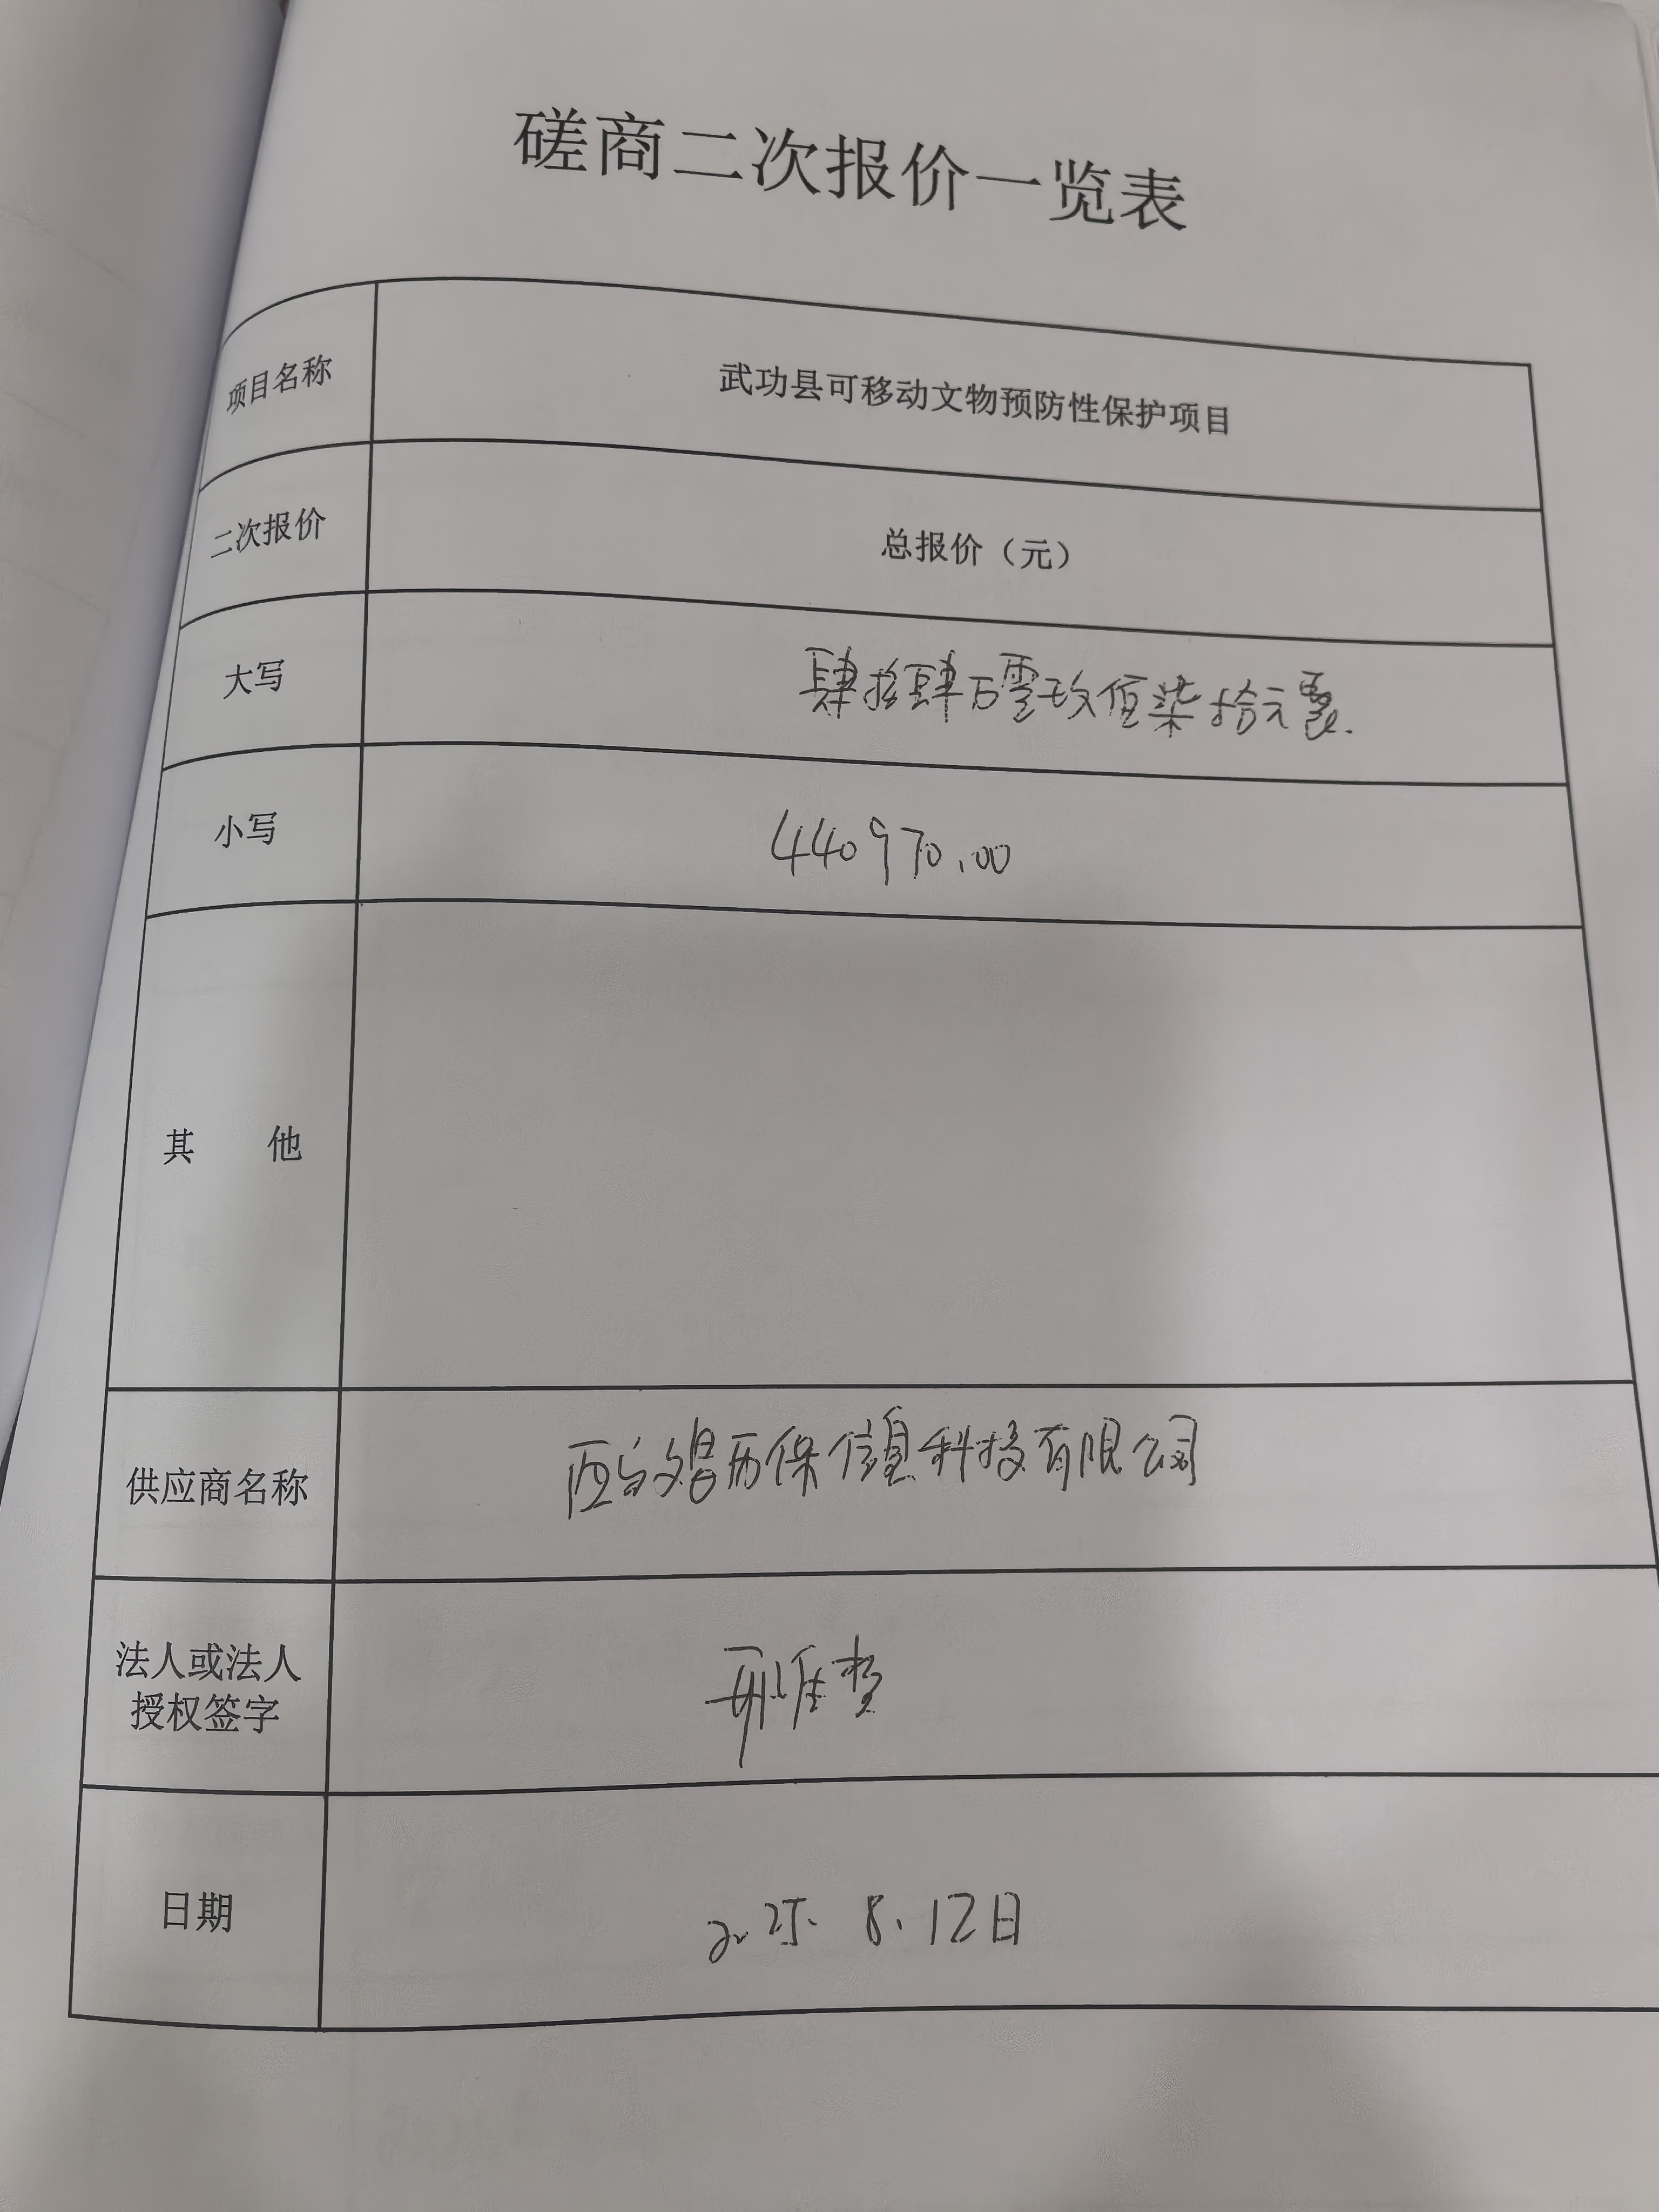 磋商二次报价一览表
项目名称 武功县可移动文物预防性保护项目
二次报价 总报价（元）
大写 肆拾肆万零玖佰柒拾元零.
小写 440970.00
其 他
供应商名称 西安文昌历保信息科技有限公司
法人或法人
授权签字 邢
日期 2025. 8.12日